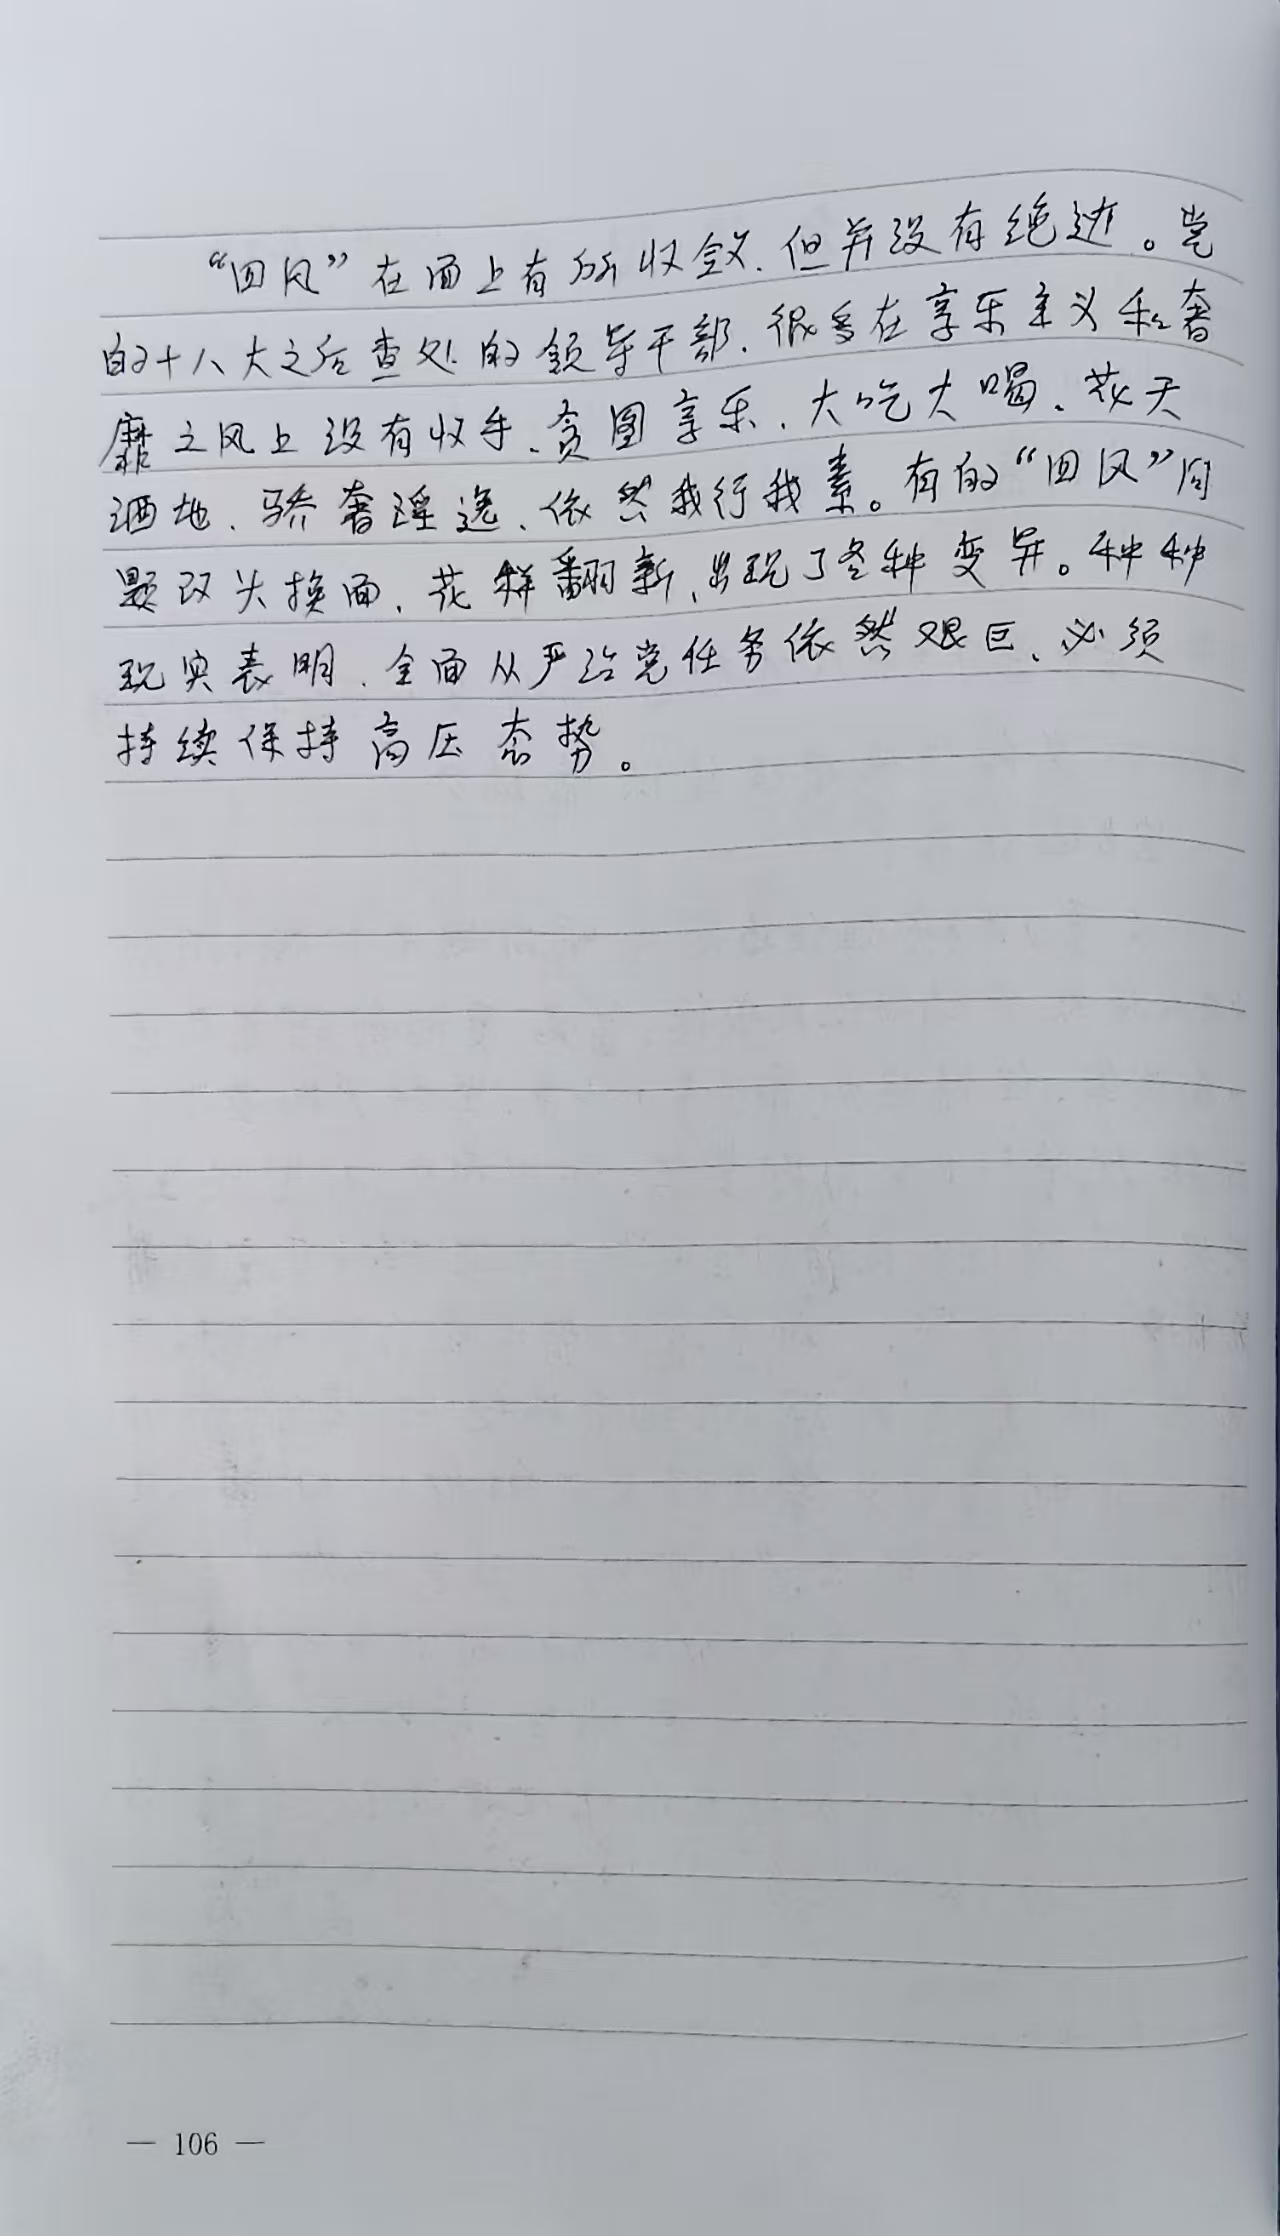 “四风”在面上有所收敛，但并没有绝迹。党
的十八大之后查处的领导干部，很多在享乐主义和奢
靡之风上没有收手，贪图享乐、大吃大喝、花天
酒地、骄奢淫逸，依然我行我素。有的“四风”问
题改头换面，花样翻新，出现了各种变异。种种
现实表明，全面从严治党任务依然艰巨，必须
持续保持高压态势。
— 106 —